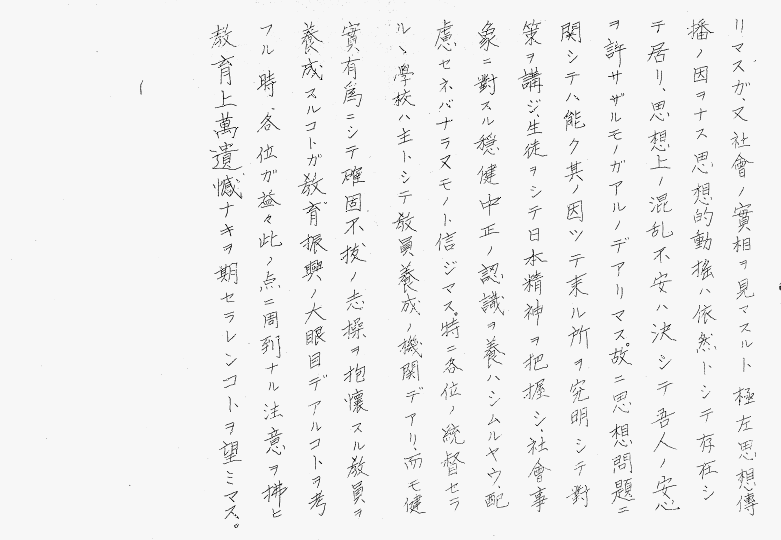 リマスガ、又社會ノ實相ヲ見マスルト極左思想傳
播ノ因ヲナス思想的動搖ハ依然トシテ存在シ
テ居リ、思想上ノ混乱不安ハ決シテ吾人ノ安心
ヲ許サザルモノガアルノデアリマス。故ニ思想問題ニ
関シテハ能ク其ノ因ツテ来ル所ヲ究明シテ對
策ヲ講ジ、生徒ヲシテ日本精神ヲ把握シ、社會事
象ニ對スル穏健中正ノ認識ヲ養ハシムルヤウ、配
慮セネバナラヌモノト信ジマス。特ニ各位ノ統督セラ
ルヽ學校ハ主トシテ敎員養成ノ機関デアリ、而モ健
實有爲ニシテ確固不拔ノ志操ヲ抱懷スル敎員ヲ
養成スルコトガ敎育振興ノ大眼目デアルコトヲ考
フル時、各位ガ益々此ノ点ニ周到ナル注意ヲ拂ヒ
敎育上萬遺憾ナキヲ期セラレンコトヲ望ミマス。